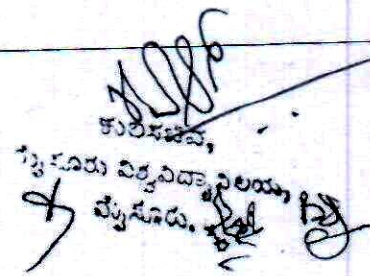 ಕುಲಸಚಿವ,
ಮೈಸೂರು ವಿಶ್ವವಿದ್ಯಾನಿಲಯ,
ಮೈಸೂರು.